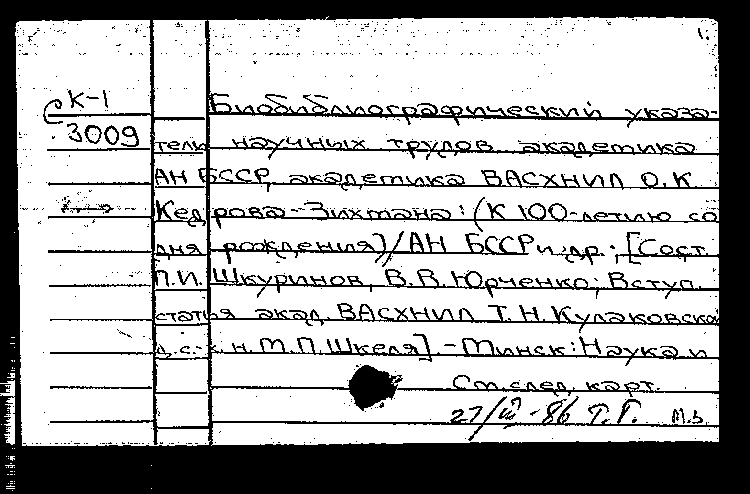 1.
К-1
3009
Библиографический указа-
тель научных трудов академика
АН БССР, академика ВАСХНИЛ О.К.
Кедрова-Зихмана: (К 100-летию со
дня рождения)/АН БССР и др.; [Сост.
П.И. Шкуринов, В.В. Юрченко; Вступ.
статья акад. ВАСХНИЛ Т.Н. Кулаковской
д.с.-х.н. М.П. Шкеля]. - Минск: Наука и
См. след. карт.
27/III-86 Т.Г. М.В.